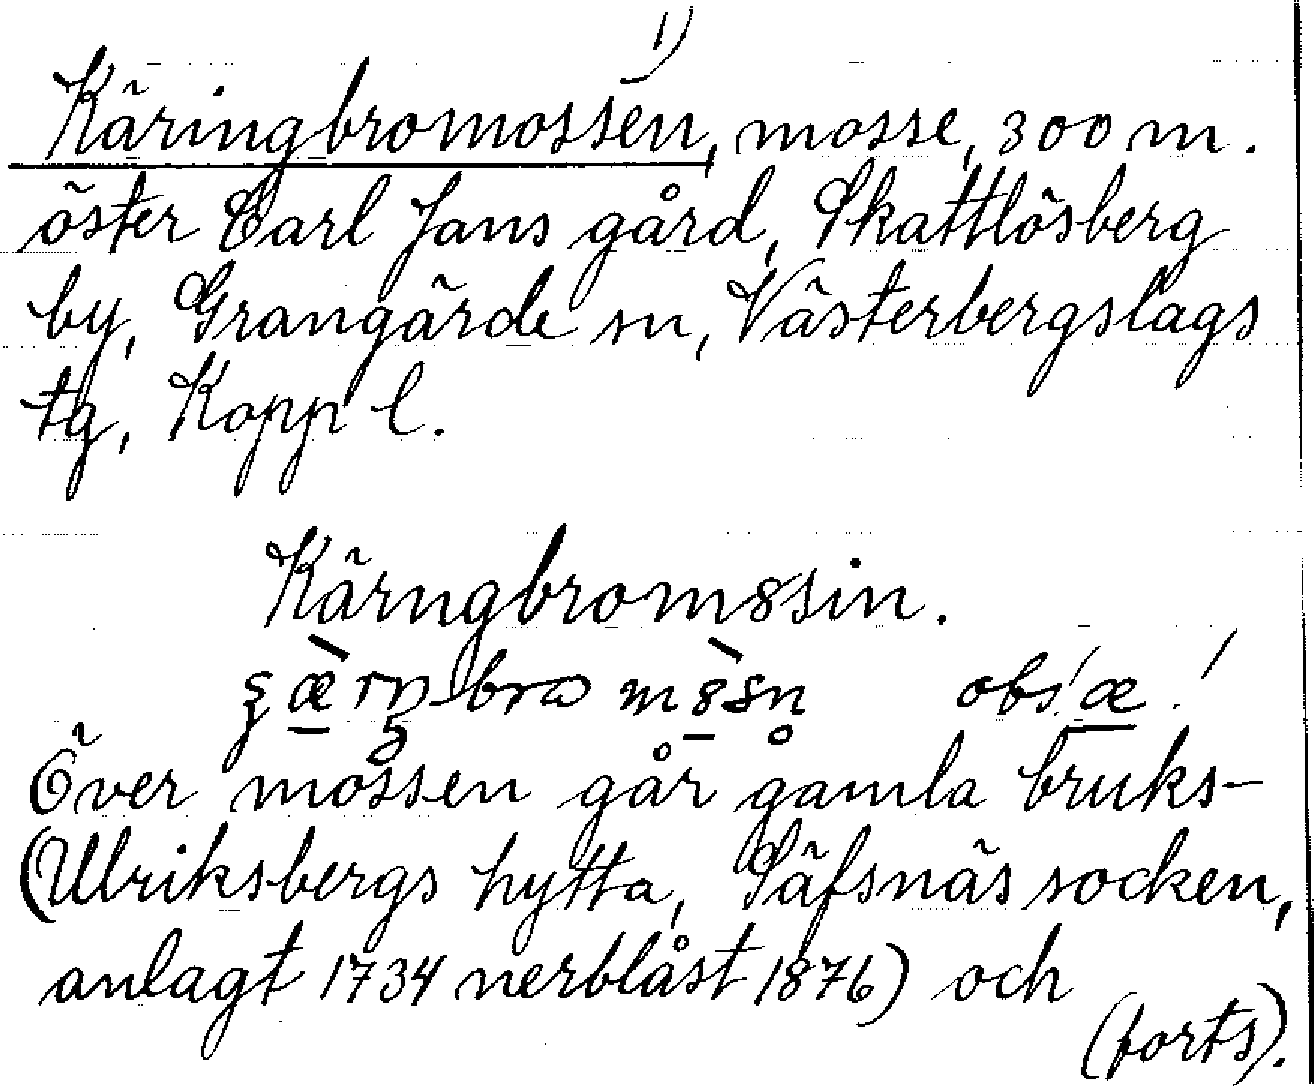 1)
Käringbromossen, mosse, 300 m.
öster Carl Jans gård, Skattlösberg
by, Grangärde sn, Västerbergslags
tg, Kopp l.
Kärngbrom8sin.
obs! æ!
Över mossen går gamla bruks-
(Ulriksbergs hytta, Säfsnäs socken,
anlagt 1734 nerblåst 1876) och
(forts).